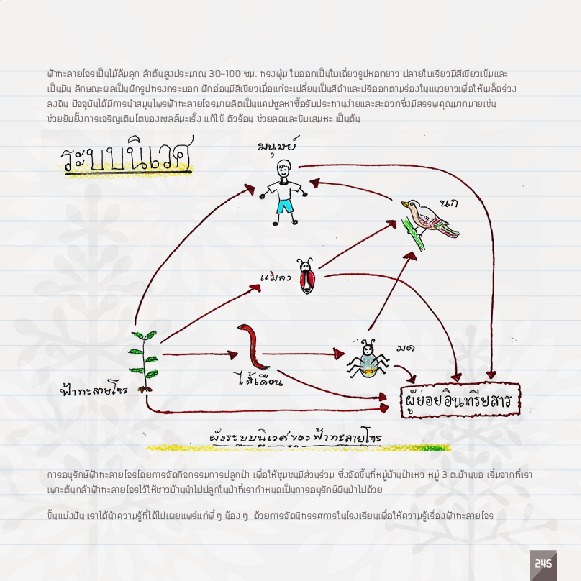 ฟ้าทะลายโจรเป็นไม้ล้มลุก ลำต้นสูงประมาณ 30-100 ซม. ทรงพุ่ม ใบออกเป็นใบเดี่ยวรูปหอกยาว ปลายใบเรียวมีสีเขียวเข้มและ
เป็นมัน ลักษณะผลเป็นฝักรูปทรงกระบอก ฝักอ่อนมีสีเขียวเมื่อแก่จะเปลี่ยนเป็นสีดำและปริออกตามร่องในแนวยาวเพื่อให้เมล็ดร่วง
ลงดิน ปัจจุบันได้มีการนำสมุนไพรฟ้าทะลายโจรมาผลิตเป็นแคปซูลหาซื้อรับประทานง่ายและสะดวกซึ่งมีสรรพคุณมากมายเช่น
ช่วยยับยั้งการเจริญเติบโตของเซลล์มะเร็ง แก้ไข้ ตัวร้อน ช่วยลดและขับเสมหะ เป็นต้น
ระบบนิเวศ
มนุษย์
นก
แมลง
มด
ไส้เดือน
ฟ้าทะลายโจร
ผู้ย่อยอินทรียสาร
ผังระบบนิเวศของฟ้าทะลายโจร
การอนุรักษ์ฟ้าทะลายโจรโดยการจัดกิจกรรมการปลูกป่า เพื่อให้ชุมชนมีส่วนร่วม ซึ่งจัดขึ้นที่หมู่บ้านป่าเหว หมู่ 3 ต.บ้านบอ เริ่มจากที่เรา
เพาะต้นกล้าฟ้าทะลายโจรไว้ให้ชาวบ้านนำไปปลูกในป่าที่เรากำหนดเป็นการอนุรักษ์ผืนป่าไปด้วย
ขั้นแบ่งปัน เราได้นำความรู้ที่ได้ไปเผยแพร่แก่พี่ ๆ น้อง ๆ ด้วยการจัดนิทรรศการในโรงเรียนเพื่อให้ความรู้เรื่องฟ้าทะลายโจร
245